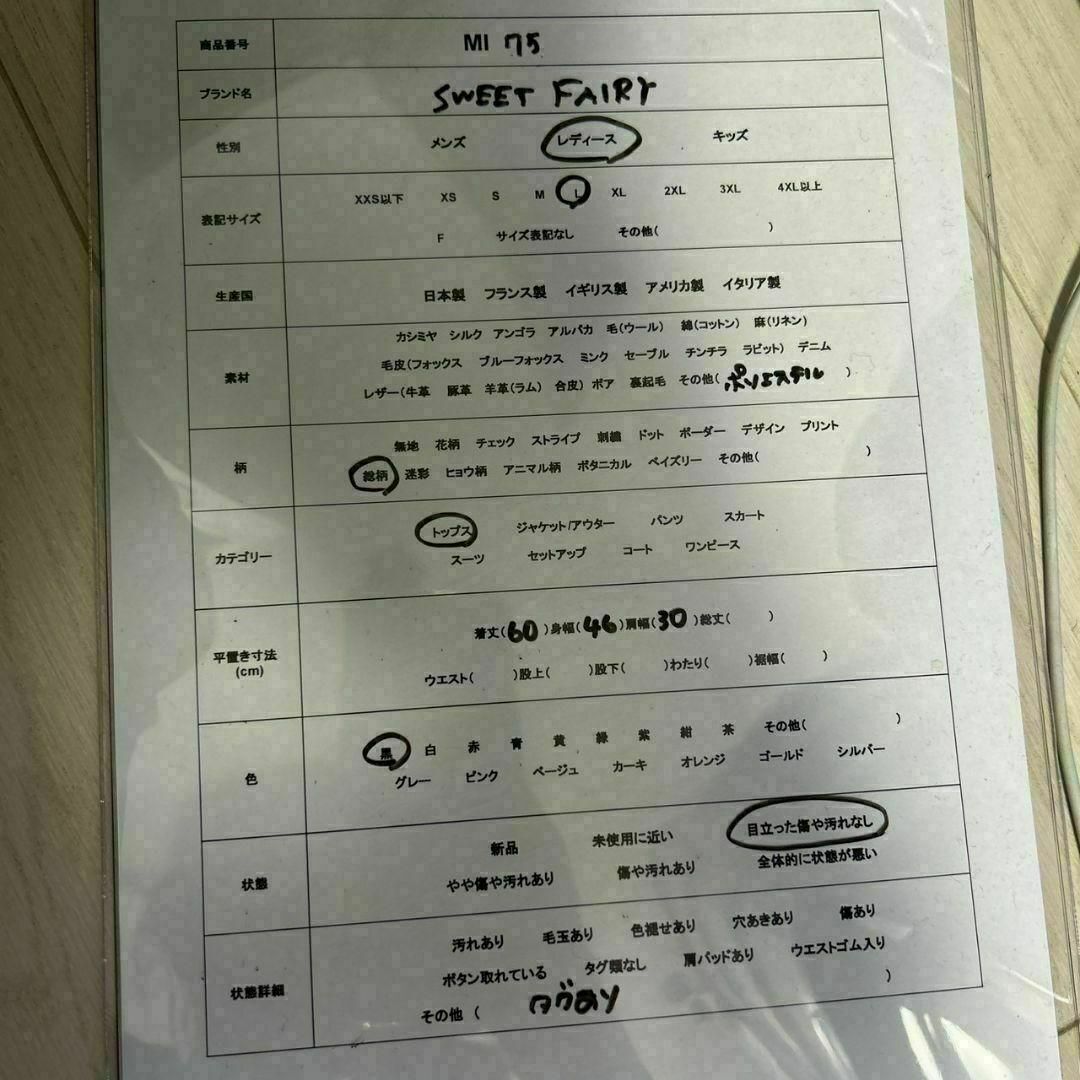 商品番号 MI 75
ブランド名 SWEET FAIRY
性別 メンズ レディース キッズ
表記サイズ XXS以下 XS S M L XL 2XL 3XL 4XL以上
F サイズ表記なし その他( )
生産国 日本製 フランス製 イギリス製 アメリカ製 イタリア製
素材 カシミヤ シルク アンゴラ アルパカ 毛(ウール) 綿(コットン) 麻(リネン)
毛皮(フォックス ブルーフォックス ミンク セーブル チンチラ ラビット) デニム
レザー(牛革 豚革 羊革(ラム) 合皮) ボア 裏起毛 その他( ポリエステル )
柄 無地 花柄 チェック ストライプ 刺繍 ドット ボーダー デザイン プリント
総柄 迷彩 ヒョウ柄 アニマル柄 ボタニカル ペイズリー その他( )
カテゴリー トップス ジャケット/アウター パンツ スカート
スーツ セットアップ コート ワンピース
平置き寸法 着丈( 60 )身幅( 46 )肩幅( 30 )総丈( )
(cm) ウエスト( )股上( )股下( )わたり( )裾幅( )
色 黒 白 赤 青 黄 緑 紫 紺 茶 その他( )
グレー ピンク ベージュ カーキ オレンジ ゴールド シルバー
状態 新品 未使用に近い 目立った傷や汚れなし
やや傷や汚れあり 傷や汚れあり 全体的に状態が悪い
状態詳細 汚れあり 毛玉あり 色褪せあり 穴あきあり 傷あり
ボタン取れている タグ類なし 肩パッドあり ウエストゴム入り
その他 ( タグあり )